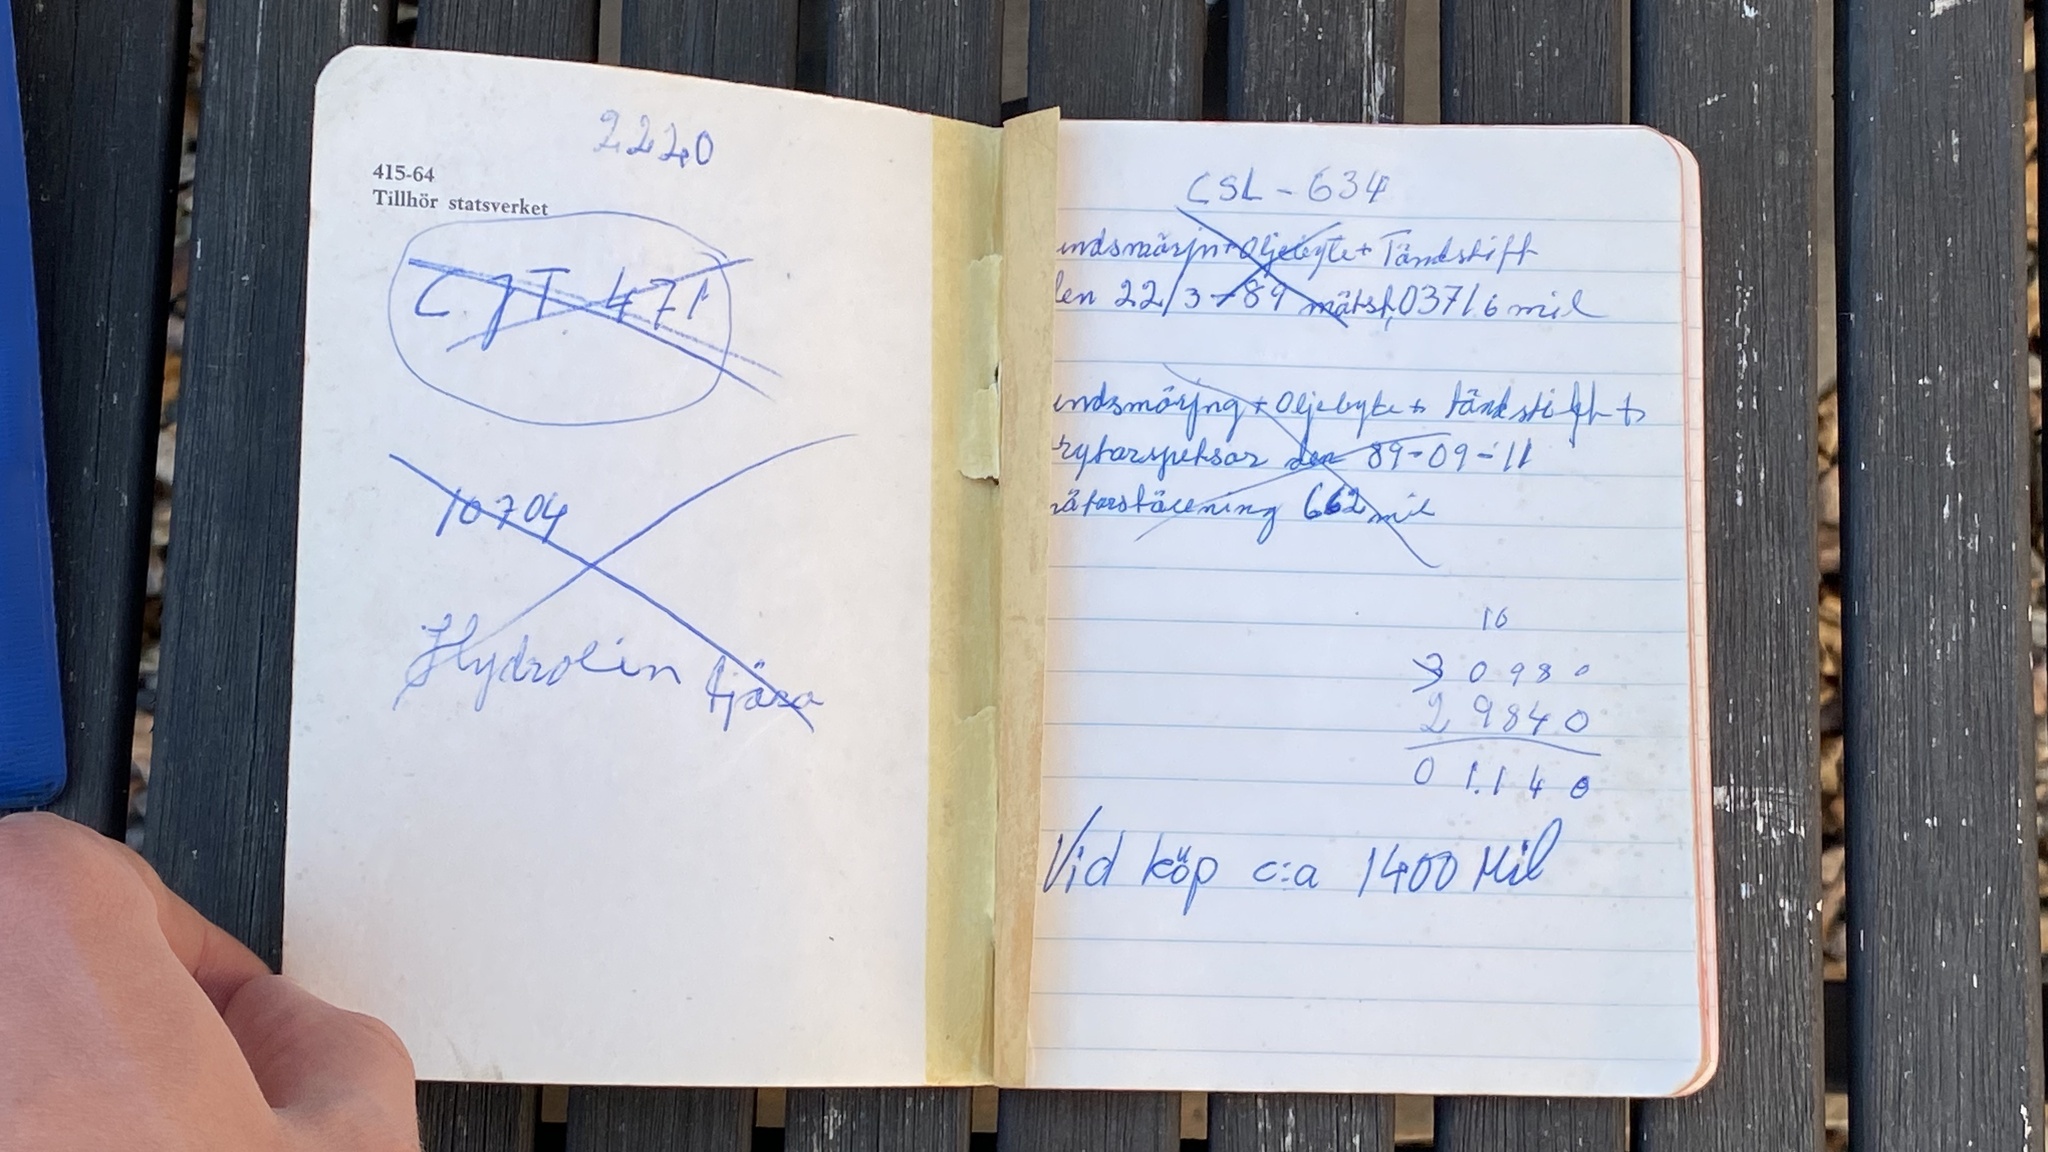 2220
415-64
Tillhör statsverket
CJT 471
10704
Hydrolin tjära
CSL-634
undsmörjn + Oljebyte + Tändstift
den 22/3-89 mätst, 03716 mil
undsmörjng + Oljebyte + tändstift +
brytarspetsar den 89-09-11
mätarställning 662 mil
10
30980
29840
01.140
Vid köp c:a 1400 Mil